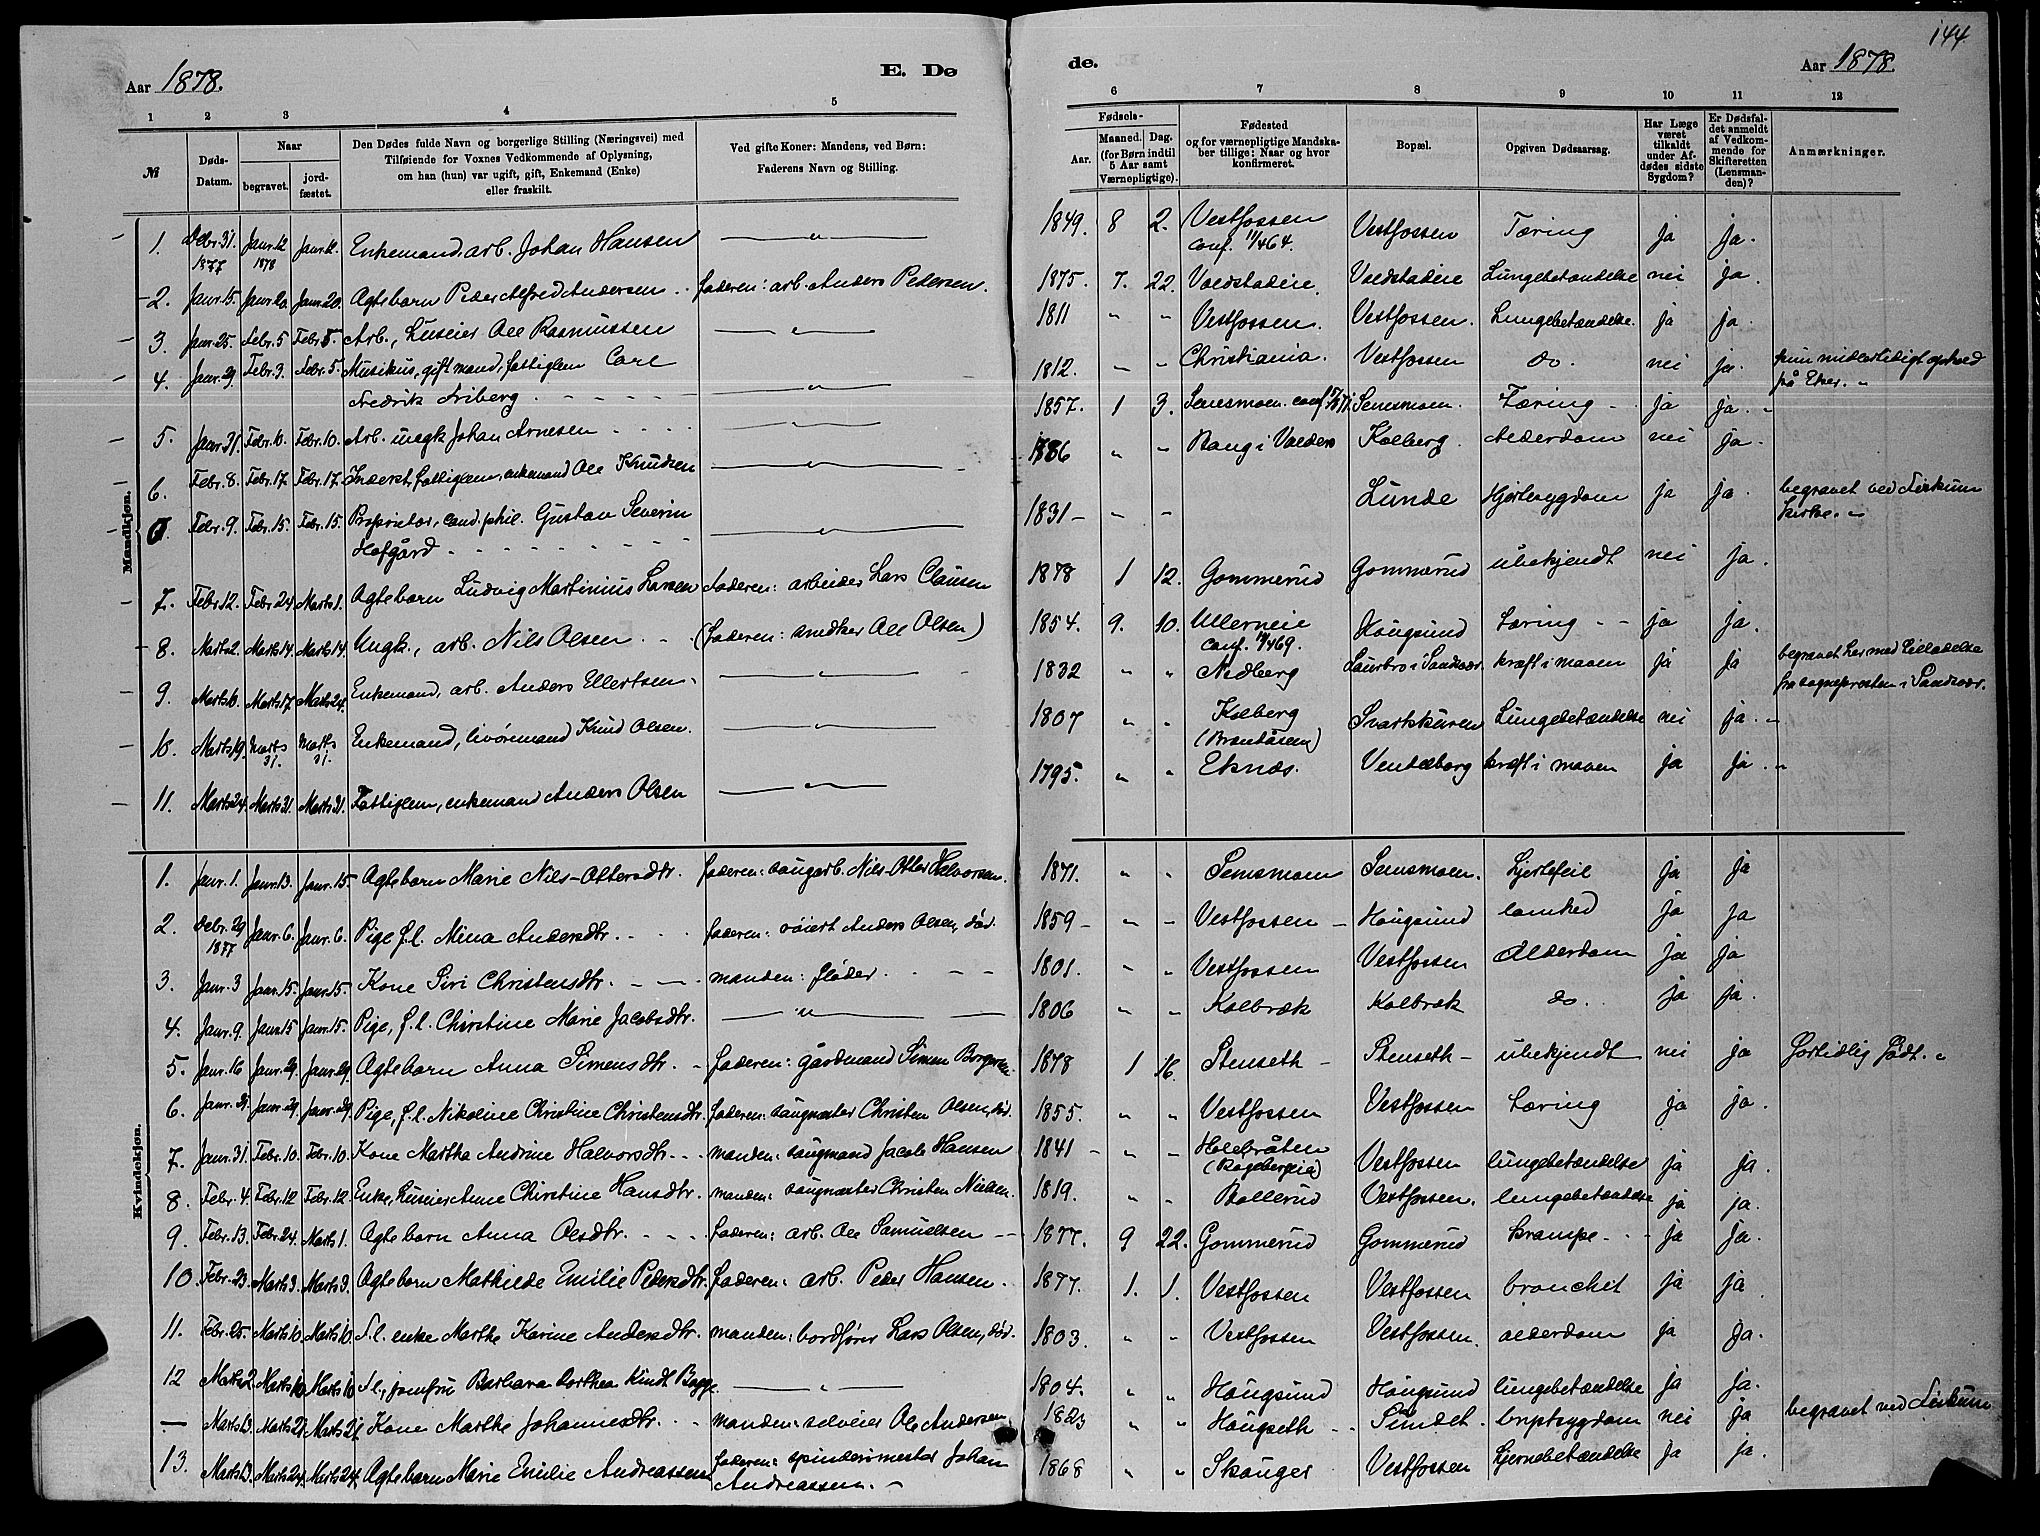 144
Aar 1878.
E. Dø
de.
Aar 1878.
1 2 3 4 5
6 7 8 9 10 11 12
№
Døds-Datum.
Naar
begravet.
jord-fæstet.
Den Dødes fulde Navn og borgerlige Stilling (Næringsvei) med
Tilføiende for Voxnes Vedkommende af Oplysning,
om han (hun) var ugift, gift, Enkemand (Enke)
eller fraskilt.
Ved gifte Koner: Mandens, ved Børn:
Faderens Navn og Stilling.
Fødsels-
Aar.
Maaned. Dag.
(for Børn indtil
5 Aar samt
Værnepligtige).
Fødested
og for værnepligtige Mandska-
ber tillige: Naar og hvor
konfirmeret.
Bopæl.
Opgiven Dødsaarsag.
Har Læge
været
tilkaldt
under Af-
dødes sidste
Sygdom?
Er Dødsfal-
det anmeldt
af Vedkom-
mende for
Skifteretten
(Lensman-
den)?
Anmærkninger.
Mandkjøn.
1. Debr. 31. 1877 Janr. 12 1878 Janr. 12. Enkemand, arb. Johan Hansen — " — 1849. 8 2. Vestfossen conf. 11/4 64. Vestfossen Tæring ja ja.
2. Janr. 15. Janr. 20 Janr. 20. Ægtebarn Peder Alfred Andersen . . faderen: arb. Anders Pedersen. 1875. 7. 22. Voldstadeie. Voldstadeie Lungebetændelse nei ja.
3. Janr. 25. Febr. 5 Febr. 5. Arb., huseier Ole Rasmussen — " — 1811 " " Vestfossen. Vestfossen. Lungebetændelse. ja ja.
4. Janr. 29. Febr. 3. Febr. 5. Musikus, gift mand, fattiglem Carl
Fredrik Friberg — " — 1812. " " Christiania. Vestfossen do. nei ja. kun midlertidigt ophold
på Eker. "
5. Janr. 31. Febr. 10. Febr. 10. Arb. ungk Johan Arnesen — " — 1857. 1 3. Semsmoen. conf Semsmoen. Tæring ja ja. "
6. Febr. 8. Febr. 17 Febr. 17. Inderst, fattiglem, enkemand Ole Knudsen — " — 1786 " " Bang i Valders Kolberg. Alderdom nei ja.
Febr. 9. Febr. 15. Febr. 15. Proprietær, cand. phil. Gustav Severin
Hofgård — " — 1831 — " " Lunde Hjertesygdom ja ja. begravet ved Fiskum
kirke. "
7. Febr. 12. Febr. 24 Marts 1. Ægtebarn Ludvig Martinius Larsen faderen: arbeider Lars Clausen 1878 1 12. Gommerud Gommerud ubekjendt nei ja.
8. Marts 2. Marts 14. Marts 14. Ungk., arb. Nils Olsen . . (faderen: snedker Ole Olsen) 1854. 9. 10. Ullerneie Conf. Hougsund Tæring ja ja.
9. Marts 10. Marts 17 Marts 24. Enkemand, arb. Anders Ellertsen. — " — 1832 " " Nedberg i Sandsvær. kræft i maven ja ja begravet her med
fra sognepresten i Sandsvær.
10. Marts 19. Marts 31. Marts 31. Enkemand, livøremand Knud Olsen. — " — 1807 " " Kolberg (Brændåsen) Svartskuren Lungebetændelse nei ja. "
11. Marts 24. Marts 31. Marts 31. Fattiglem, enkemand Anders Olsen — " — 1795. " " Eknæs. Vendelborg kræft i maven ja ja. "
Kvindekjøn.
1. Janr. 1. Janr. 13. Janr. 15 Ægtebarn Marie Nils-Ottersdtr. faderen: saugarb. Nils-Otter Halvorsen. 1871. " " Semsmoen Semsmoen. Hjertefeil ja ja
2. Debr. 29 1877 Janr. 6. Janr. 6. Pige f.l. Mina Andersdtr. . . . faderen: røiert Anders Olsen, død. 1859 — " " Vestfossen — Hougsund lamhed ja ja
3. Janr. 3 Janr. 15. Janr. 15. Kone Siri Christensdtr. . — — manden: fløder. . — — 1801. " " Vestfossen Vestfossen Alderdom ja ja
4. Janr. 9. Janr. 15 Janr. 15. Pige, f.l. Christine Marie Jacobsdtr. — " — 1806 " " Kolbræk Kolbræk do. . ja ja.
5. Janr. 16 Janr. 29. Janr. 29. Ægtebarn Anna Simensdtr. . faderen: gårdmand Simen Borgersen. 1878 1 16. Stenseth — Stenseth — ubekjendt nei ja Fortidlig født. "
6. Janr. Janr. 29. Janr. 29 Pige, f.l. Nikoline Christine Christensdtr. faderen: saugmester Christen Olsen, død. 1855. " " Vestfossen Vestfossen Tæring ja ja.
7. Janr. 31. Febr. 10. Febr. 10. Kone Marthe Andrine Halvorsdtr. . . manden: saugmand Jacob Hansen 1841 — " " Holebråten Vestfossen lungebetændelse ja ja.
8. Febr. 4. Febr. 12 Febr. 12 Enke, huseier Anne Christine Hansdtr. manden: saugmester Christen Nielsen. 1819. " " Bollerud Vestfossen. lungebetændelse ja ja.
9. Febr. 13. Febr. 24. Marts 1. Ægtebarn Anna Olsdtr. . . . faderen: arb. Ole Samuelsen — 1877. 9 22. Gommerud Gommerud krampe. . ja ja.
10. Febr. 23. Marts 3. Marts 3. Ægtebarn Mathilde Emilie Pedersdtr. faderen: arb. Peder Hansen. 1877. 1. 1. Vestfossen Vestfossen bronchit ja ja.
11. Febr. 25. Marts 10. Marts 10. F.l. enke Marthe Karine Andersdtr. manden: bordfører Lars Olsen, død. 1803. " " Vestfossen Vestfossen. alderdom ja ja.
12 Marts 2. Marts 10 Marts 10 F.l., jomfru Barbara Dorthea Kindt Bagge. — " — 1804. " " Hougsund Hougsund lungebetændelse ja ja.
— Marts 13. Marts 21. Marts 21. Kone Marthe Johannesdtr. . . manden: selveier Ole Andersen. 1823 " " Hougseth . . Sundet . brystsygdom nei ja begravet ved Fiskum
13. Marts 13. Marts 24. Marts 24. Ægtebarn Marie Emilie Andreassen faderen: spinderimester Johan
Andreassen. — 1868 " " Skouger Vestfossen Hjernebetændelse ja ja.